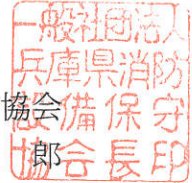 一般社団法人
兵庫県消防
設備保守
協会長印
協会
郎